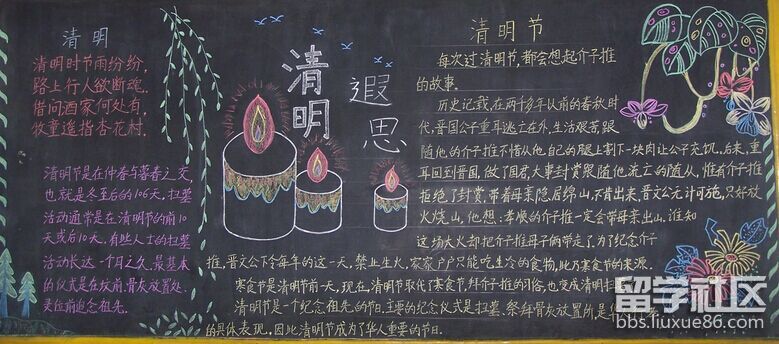 清明
清明时节雨纷纷,
路上行人欲断魂.
借问酒家何处有,
牧童遥指杏花村.
清明节是在仲春与暮春之交,
也就是冬至后的106天.扫墓
活动通常是在清明节的前10
天或后10天.有些人士的扫墓
活动长达一个月之久.最基本
的仪式是在坟前.骨灰放置处.
灵位前追念祖先.
清明
遐思
清明节
每次过清明节,都会想起介子推
的故事.
历史记载,在两千多年以前的春秋时
代,晋国公子重耳逃亡在外,生活艰苦,跟
随他的介子推不惜从他自己的腿上割下一块肉让公子充饥.后来,重
耳回到晋国,做了国君,大事封赏聚随他流亡的随从,惟有介子推
拒绝了封赏,带着母亲隐居绵山,不肯出来,晋文公无计可施,只好放
火烧山,他想:孝顺的介子推一定会带母亲出山.谁知
这场大火却把介子推母子俩带走了.为了纪念介子
推,晋文公下令每年的这一天,禁止生火,家家户户只能吃生冷的食物,此乃寒食节的来源.
寒食节是清明节前一天,现在,清明节取代了寒食节,拜介子推的习俗,也变成清明扫
清明节是一个纪念祖先的节日.主要的纪念仪式是扫墓.祭拜骨灰放置所,是
的具体表现,因此清明节成为了华人重要的节日.
留学社区
bbs.liuxue86.com